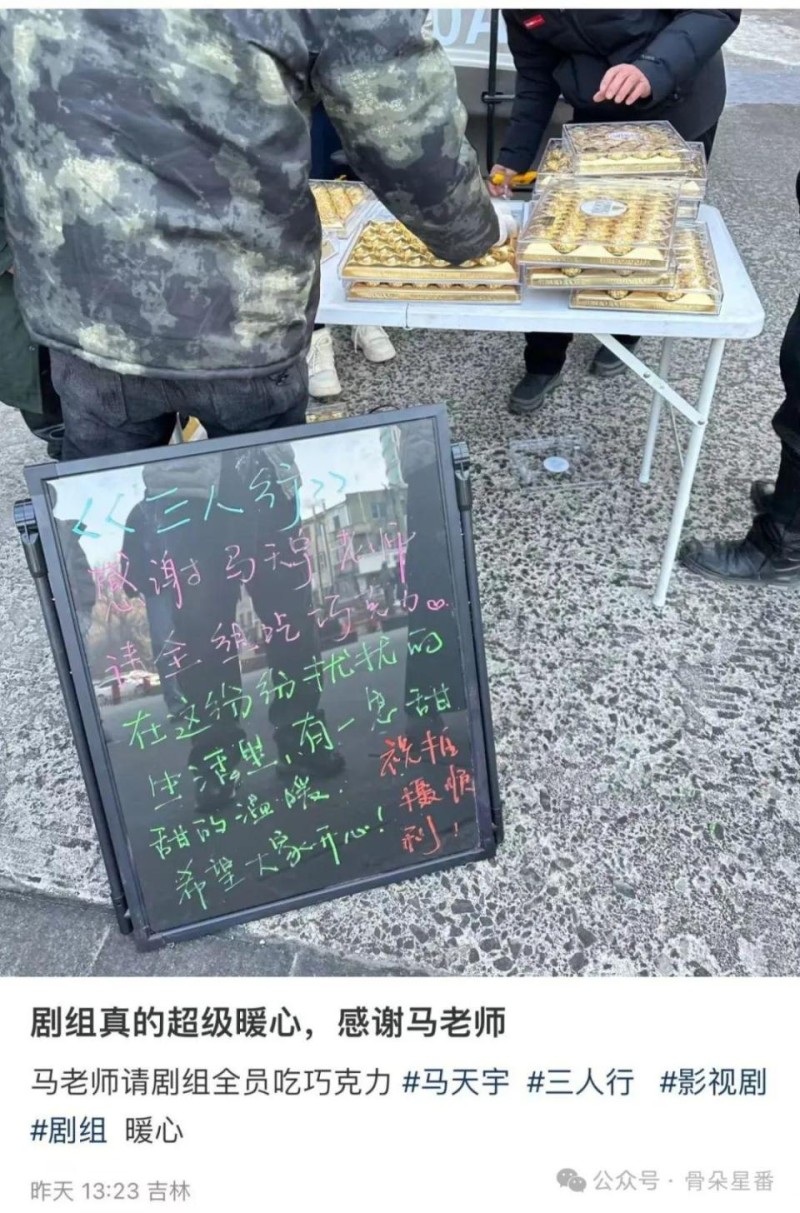 《三人行》
感谢马天宇老师
请全组吃巧克力
在这纷纷扰扰的
生活里，有一息甜
甜的温暖.
希望大家开心！
祝拍
摄顺
利！
剧组真的超级暖心，感谢马老师
马老师请剧组全员吃巧克力 #马天宇 #三人行 #影视剧
#剧组 暖心
昨天 13:23 吉林
公众号 · 骨朵星番